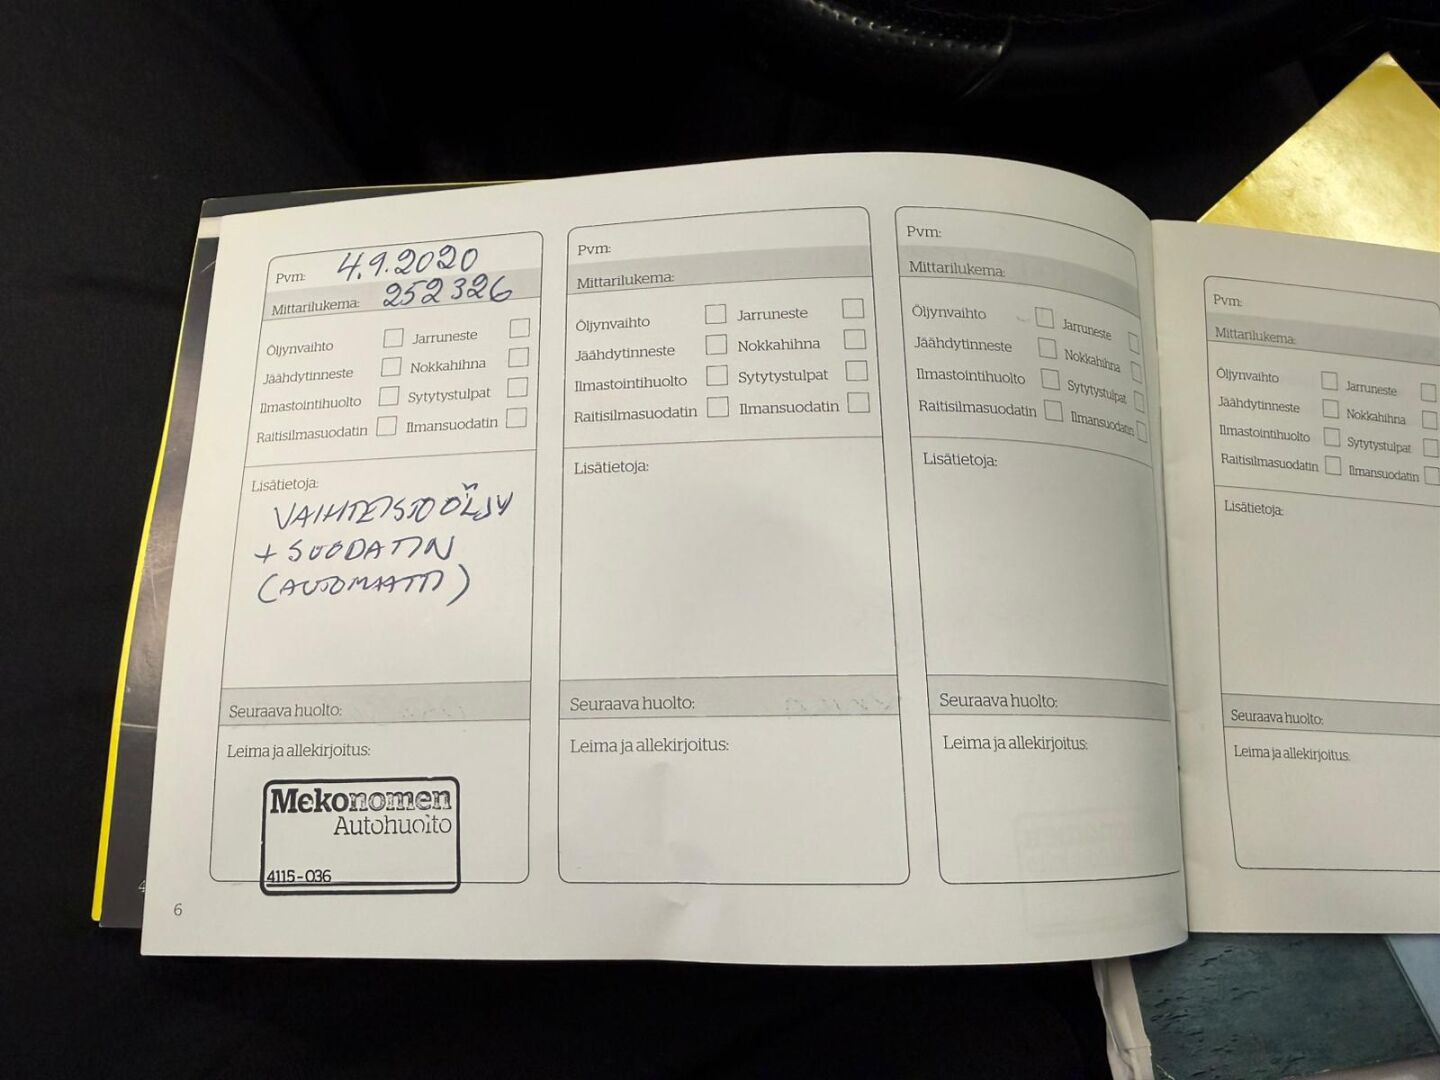 Pvm: 4.9.2020
Mittarilukema: 252326
Öljynvaihto Jarruneste
Jäähdytinneste Nokkahihna
Ilmastointihuolto Sytytystulpat
Raitisilmasuodatin Ilmansuodatin
Lisätietoja:
VAIHTEISTOÖLJY
+ SUODATIN
(AUTOMAATTI)
Seuraava huolto:
Leima ja allekirjoitus:
Mekonomen
Autohuolto
4115-036
6
Pvm:
Mittarilukema:
Öljynvaihto Jarruneste
Jäähdytinneste Nokkahihna
Ilmastointihuolto Sytytystulpat
Raitisilmasuodatin Ilmansuodatin
Lisätietoja:
Seuraava huolto:
Leima ja allekirjoitus:
Pvm:
Mittarilukema:
Öljynvaihto Jarruneste
Jäähdytinneste Nokkahihna
Ilmastointihuolto Sytytystulpat
Raitisilmasuodatin Ilmansuodatin
Lisätietoja:
Seuraava huolto:
Leima ja allekirjoitus:
Pvm:
Mittarilukema:
Öljynvaihto Jarruneste
Jäähdytinneste Nokkahihna
Ilmastointihuolto Sytytystulpat
Raitisilmasuodatin Ilmansuodatin
Lisätietoja:
Seuraava huolto:
Leima ja allekirjoitus: